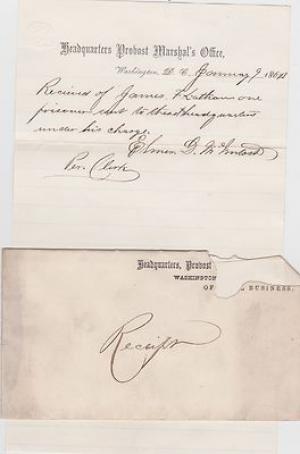 Headquarters Provost Marshal's Office,
Washington, D. C. January 9 1864
Received of James Latham one
prisoner sent to these headquarters
under his charge.
Per. Clerk
Headquarters, Provost
WASHINGTON
OF BUSINESS.
Receipt